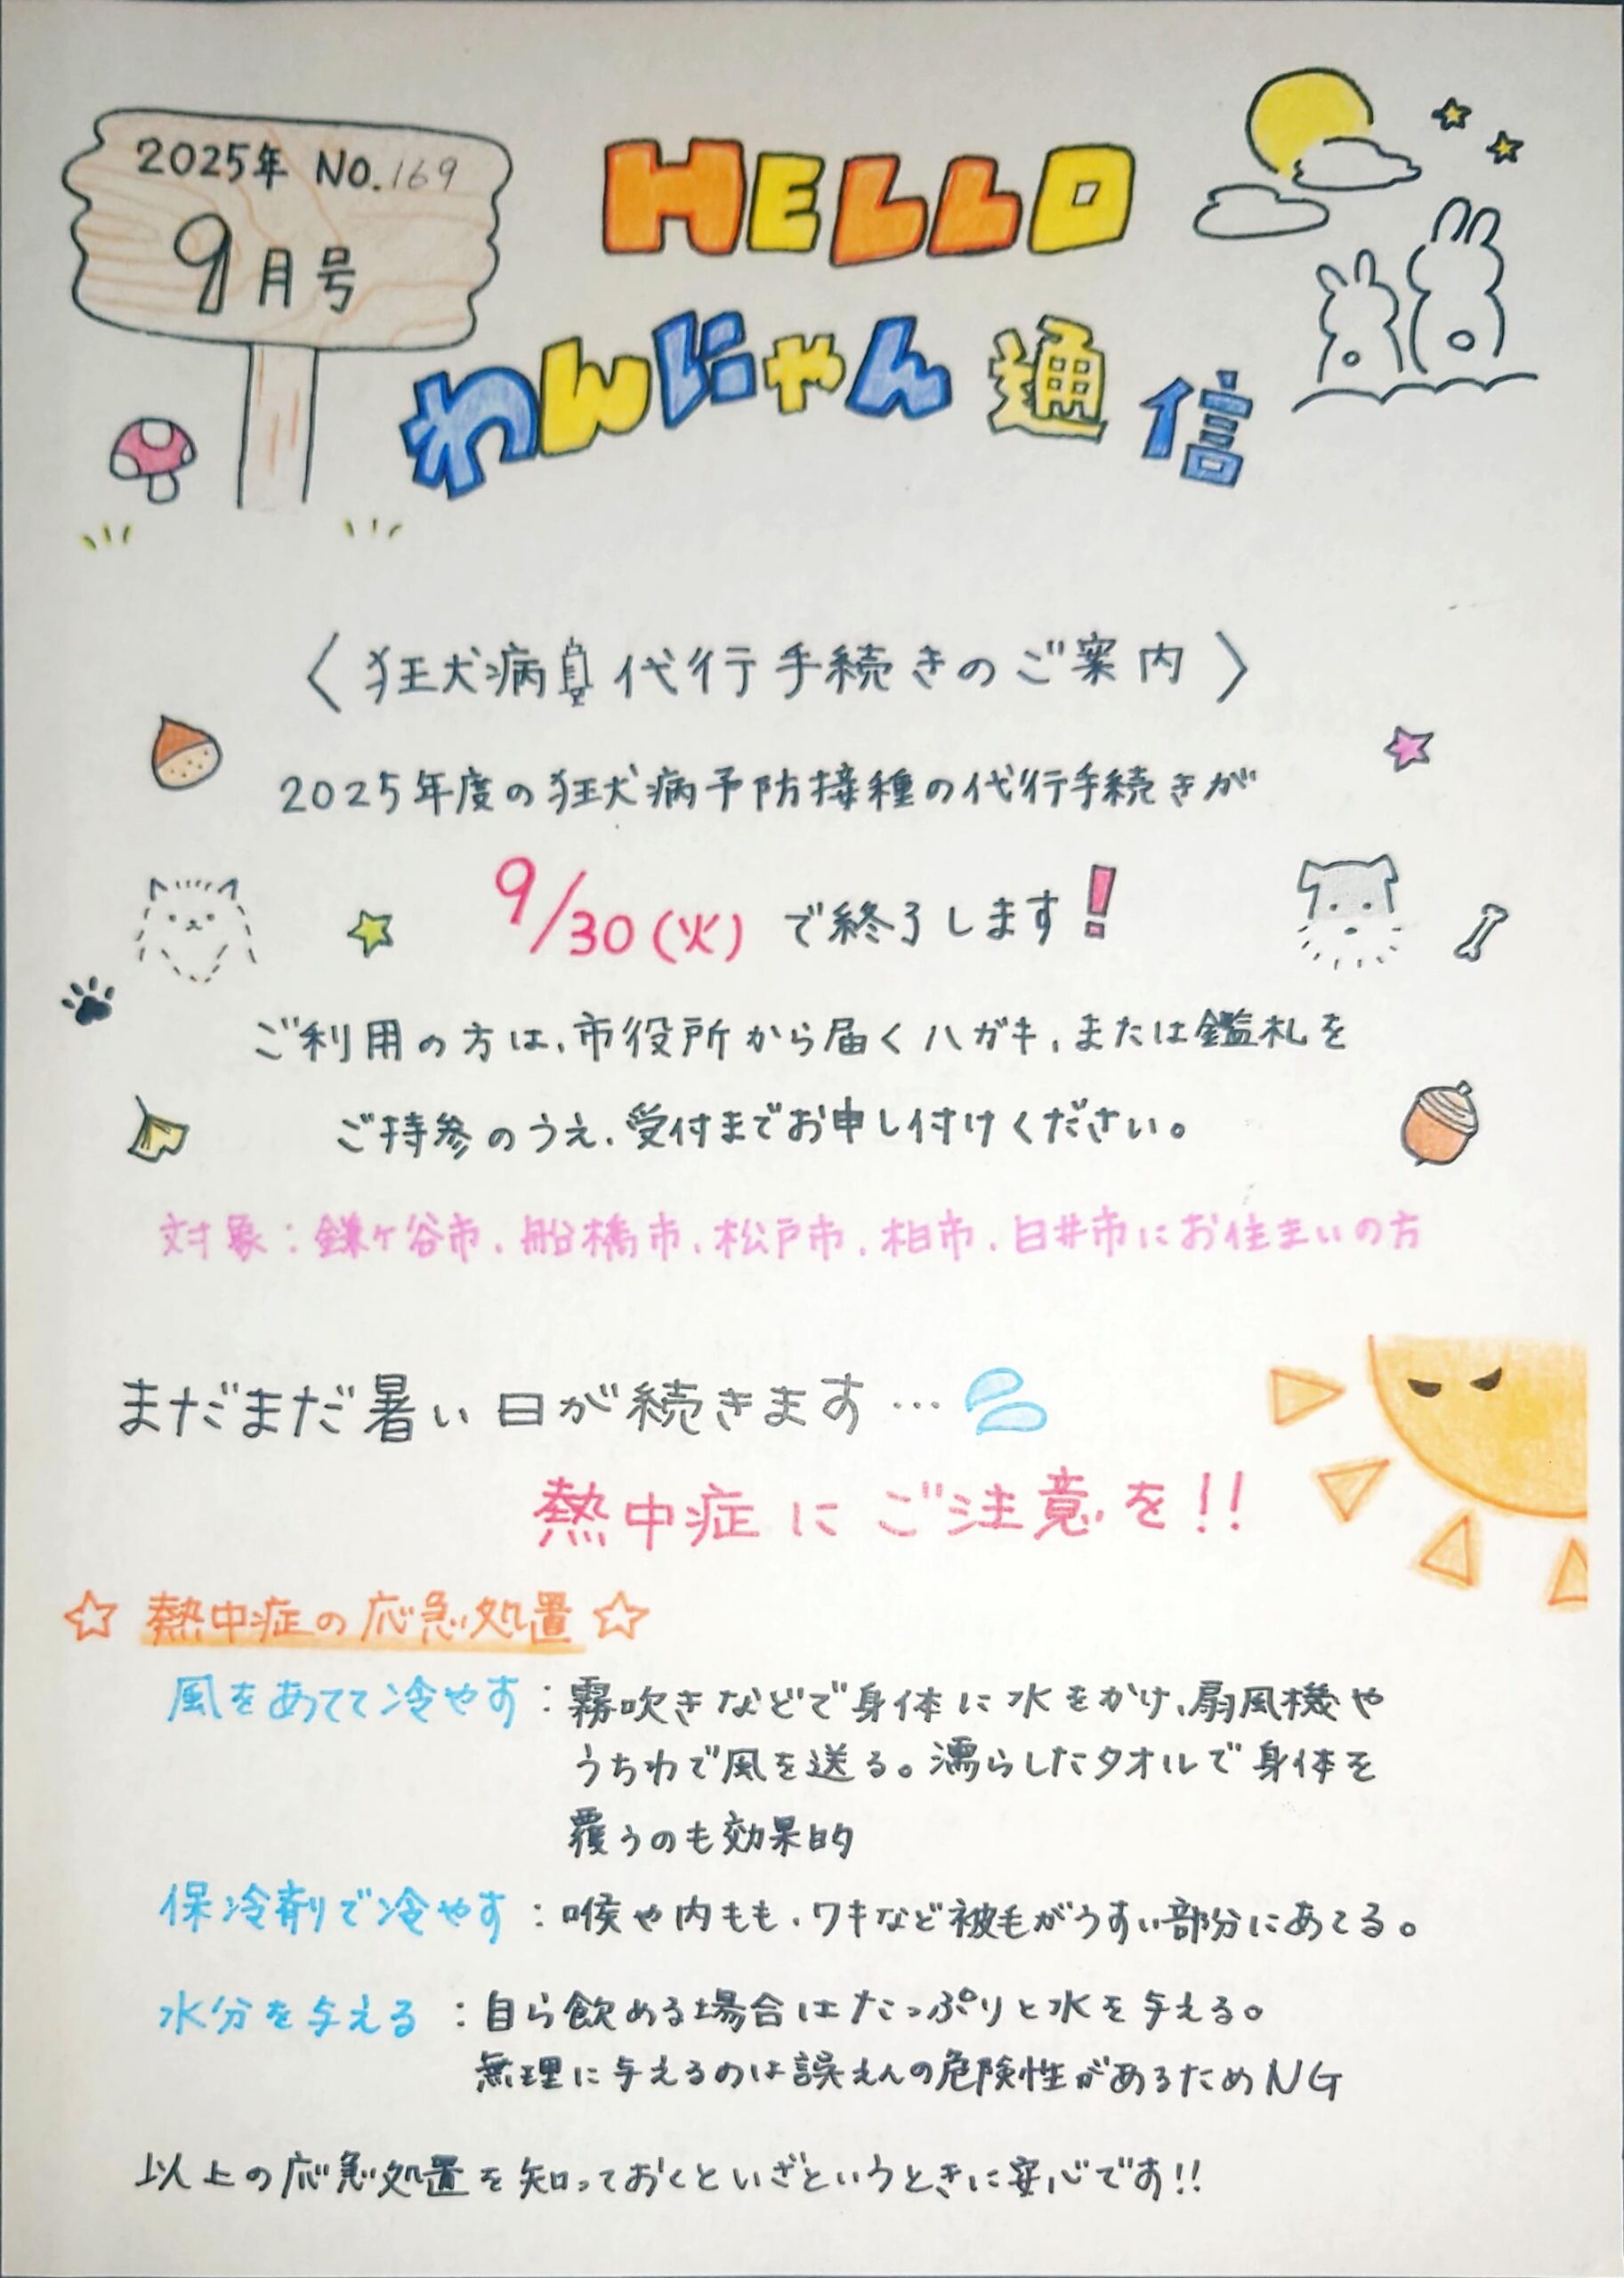 2025年 NO.169
9月号
HELLO
わんにゃん通信
〈狂犬病代行手続きのご案内〉
2025年度の狂犬病予防接種の代行手続きが
9/30(火)で終了します!
ご利用の方は、市役所から届くハガキ、または鑑札を
ご持参のうえ、受付までお申し付けください。
対象:鎌ヶ谷市、船橋市、松戸市、柏市、白井市にお住まいの方
まだまだ暑い日が続きます…
熱中症にご注意を!!
☆熱中症の応急処置☆
風をあてて冷やす:霧吹きなどで身体に水をかけ、扇風機や
うちわで風を送る。濡らしたタオルで身体を
覆うのも効果的
保冷剤で冷やす:喉や内もも、ワキなど被毛がうすい部分にあてる。
水分を与える:自ら飲める場合はたっぷりと水を与える。
無理に与えるのは誤えんの危険性があるためNG
以上の応急処置を知っておくといざというときに安心です!!